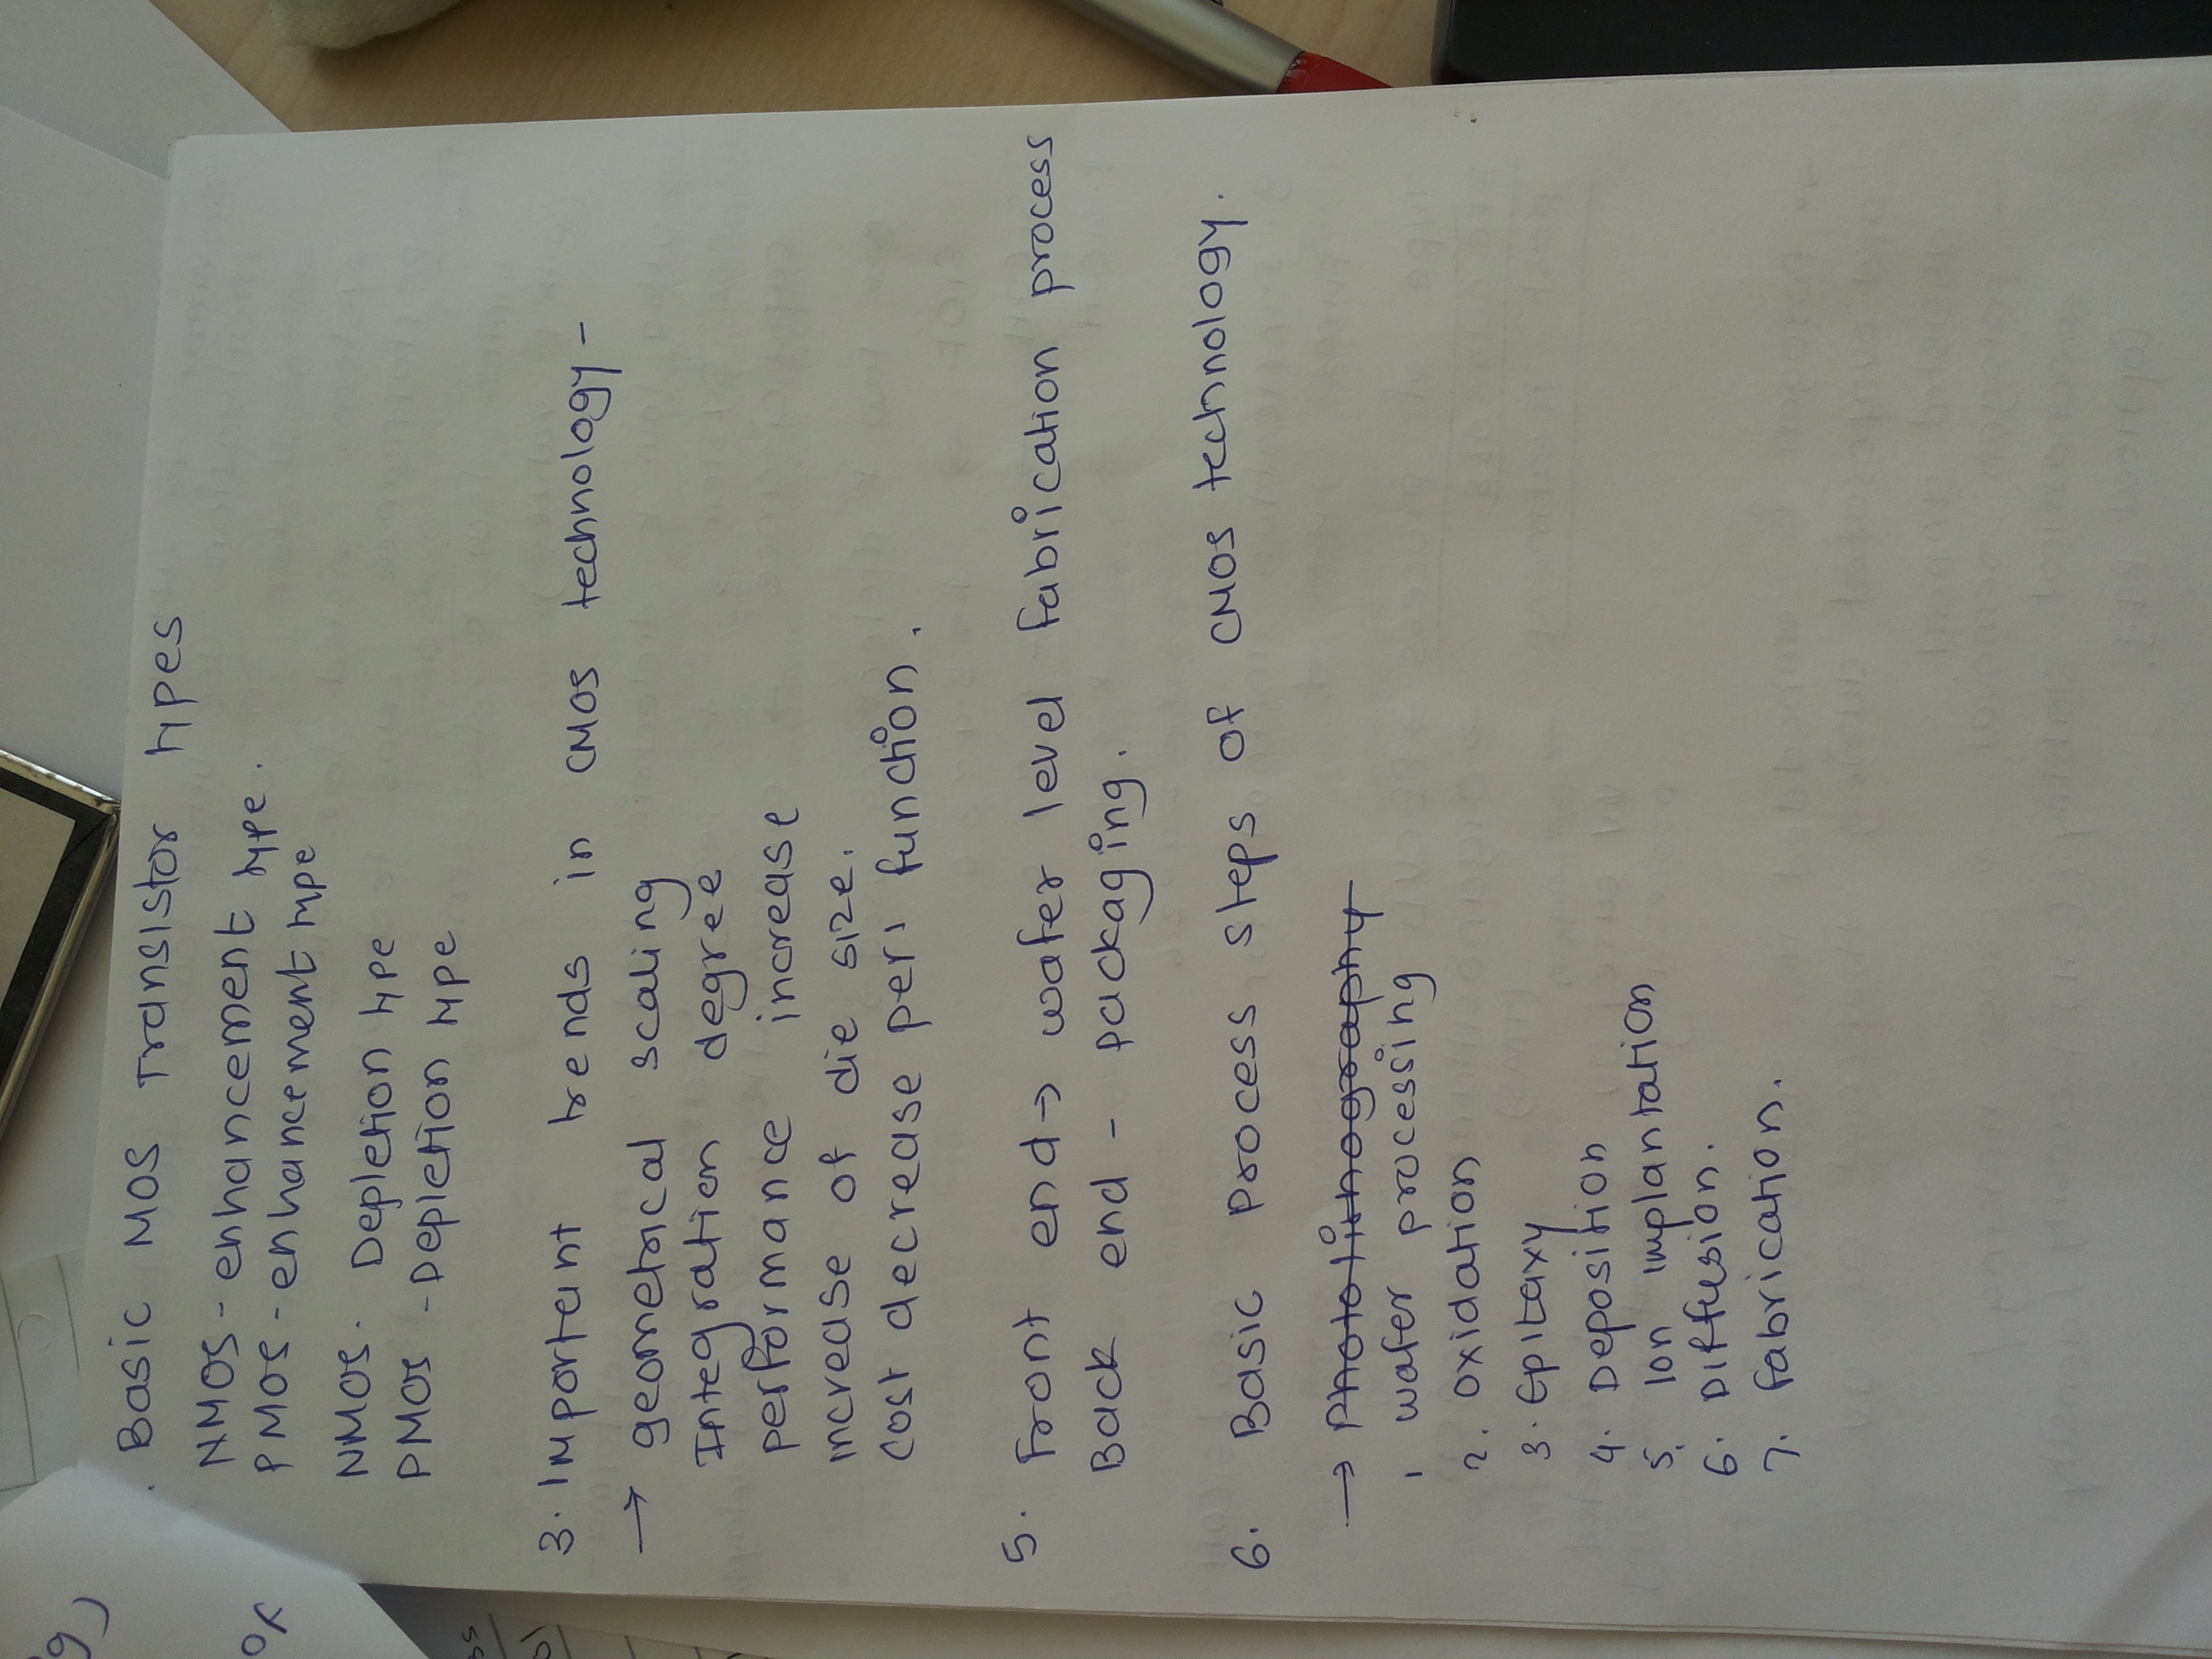 . Basic MOS Transistor types
NMOS - enhancement type.
PMOS - enhancement type
NMOS. Depletion type
PMOS - Depletion type
3. Important trends in CMOS technology -
→ geometrical scaling
Integration degree
performance increase
increase of die size.
Cost decrease per function.
5. Front end → wafer level fabrication process
Back end - packaging.
6. Basic Process steps of CMOS technology.
→ Photolithography
1 wafer processing
2. Oxidation
3. Epitaxy
4. Deposition
5. Ion implantation
6. Diffusion.
7. fabrication.